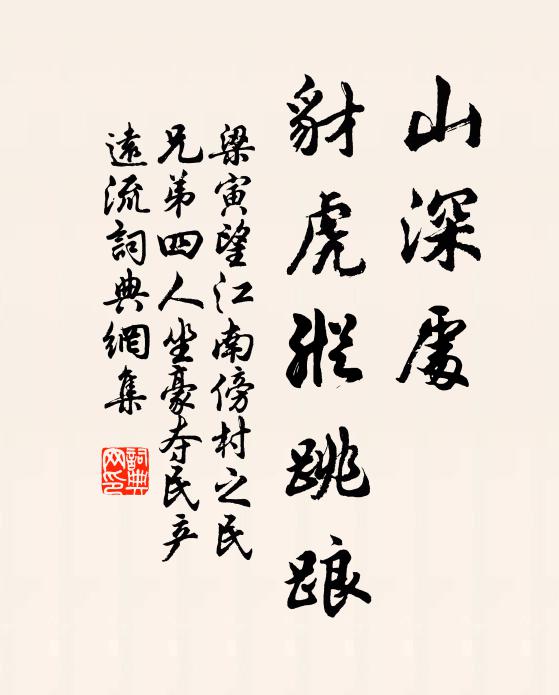 山深處
豺虎縱跳踉
梁寅望江南傍村之民
兄弟四人坐豪夺民产
遠流詞典網集
詞典网印